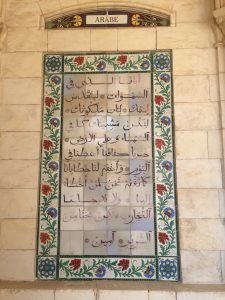 ARABE
أبانا الذي في
السموات * ليتقدس
اسمك * ليأت ملكوتك *
لتكن مشيئتك كما في
السماء و على الأرض *
خبزنا كفافنا أعطنا في
اليوم * واغفر لنا خطايانا
كما نغفر نحن لمن أخطأ
إلينا * ولا تدخلنا
التجارب * لكن نجنا من
الشرير * آمين *